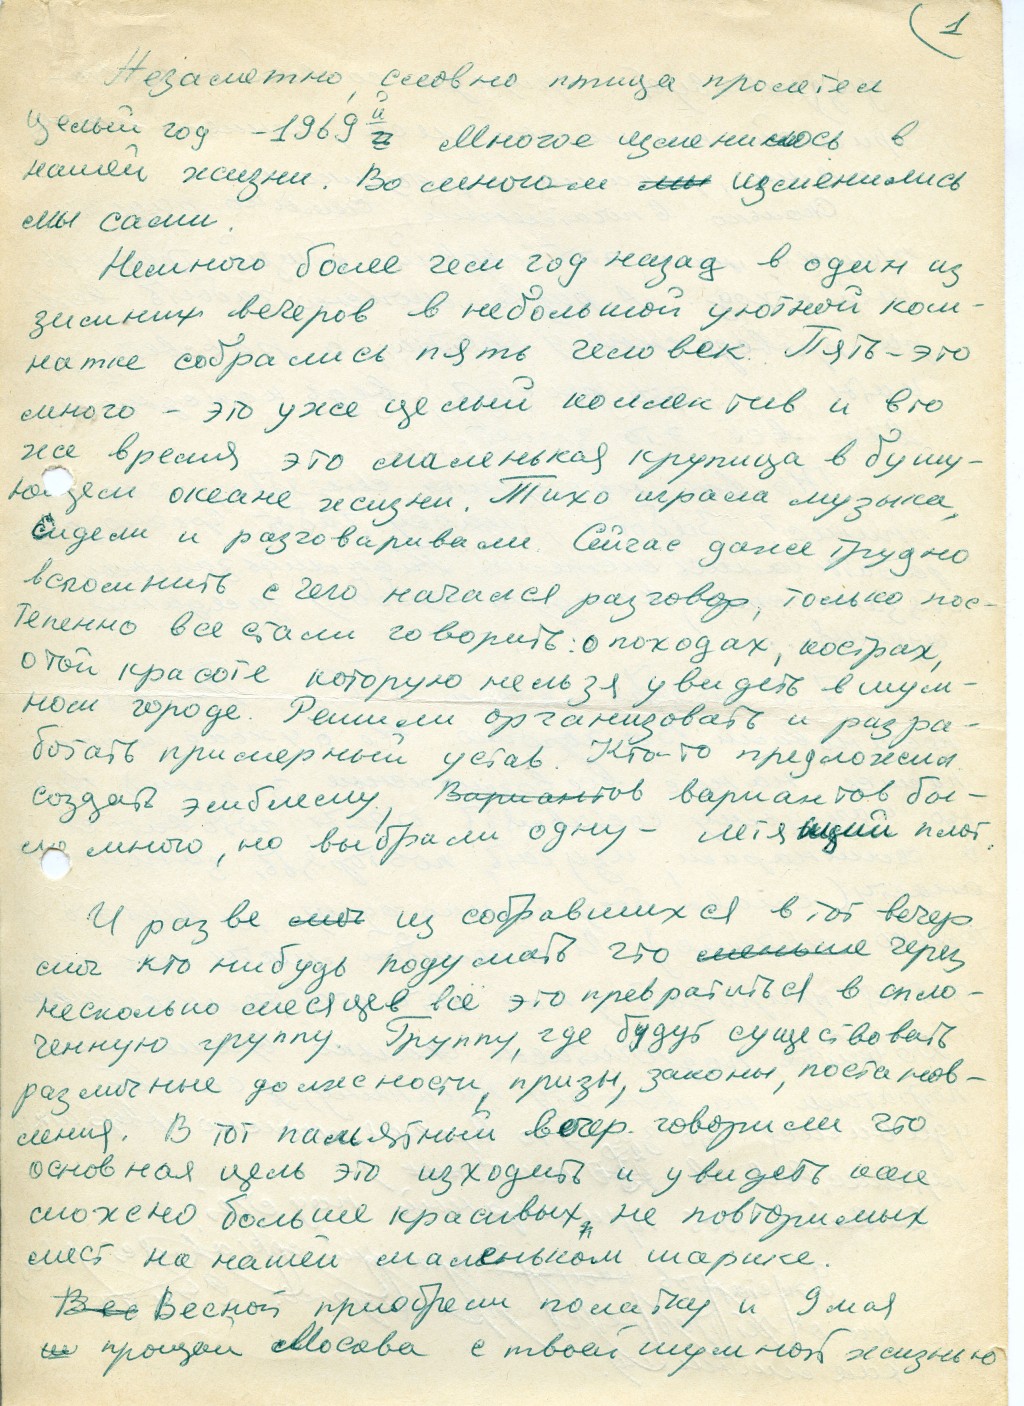 1
Незаметно, словно птица пролетел
целый год - 1969й Многое изменилось в
нашей жизни. Во многом мы изменились
мы сами.
Немного более чем год назад в один из
зимних вечеров в небольшой уютной ком-
натке собрались пять человек. Пять - это
много - это уже целый коллектив и в то
же время это маленькая крупица в бушу-
ющем океане жизни. Тихо играла музыка,
сидели и разговаривали. Сейчас даже трудно
вспомнить с чего начался разговор, только пос-
тепенно все стали говорить: о походах, кострах,
о той красоте которую нельзя увидеть в шум-
ном городе. Решили организовать и разра-
ботать примерный устав. Кто-то предложил
создать эмблему, Вариантов вариантов бы-
ло много, но выбрали одну - летящий плот.
И разве мог из собравшихся в тот вечер
мог кто нибудь подумать что меньше через
несколько месяцев всё это превратиться в спло-
ченную группу. Группу, где будут существовать
различные должности, призы, законы, постанов-
ления. В тот памятный вечер говорили что
основная цель это изходить и увидеть как
можно больше красивых, не повторимых
мест на нашей маленьком шарике.
Вес Весной приобрели палатку и 9 мая
прощай Москва с твоей шумной жизнью